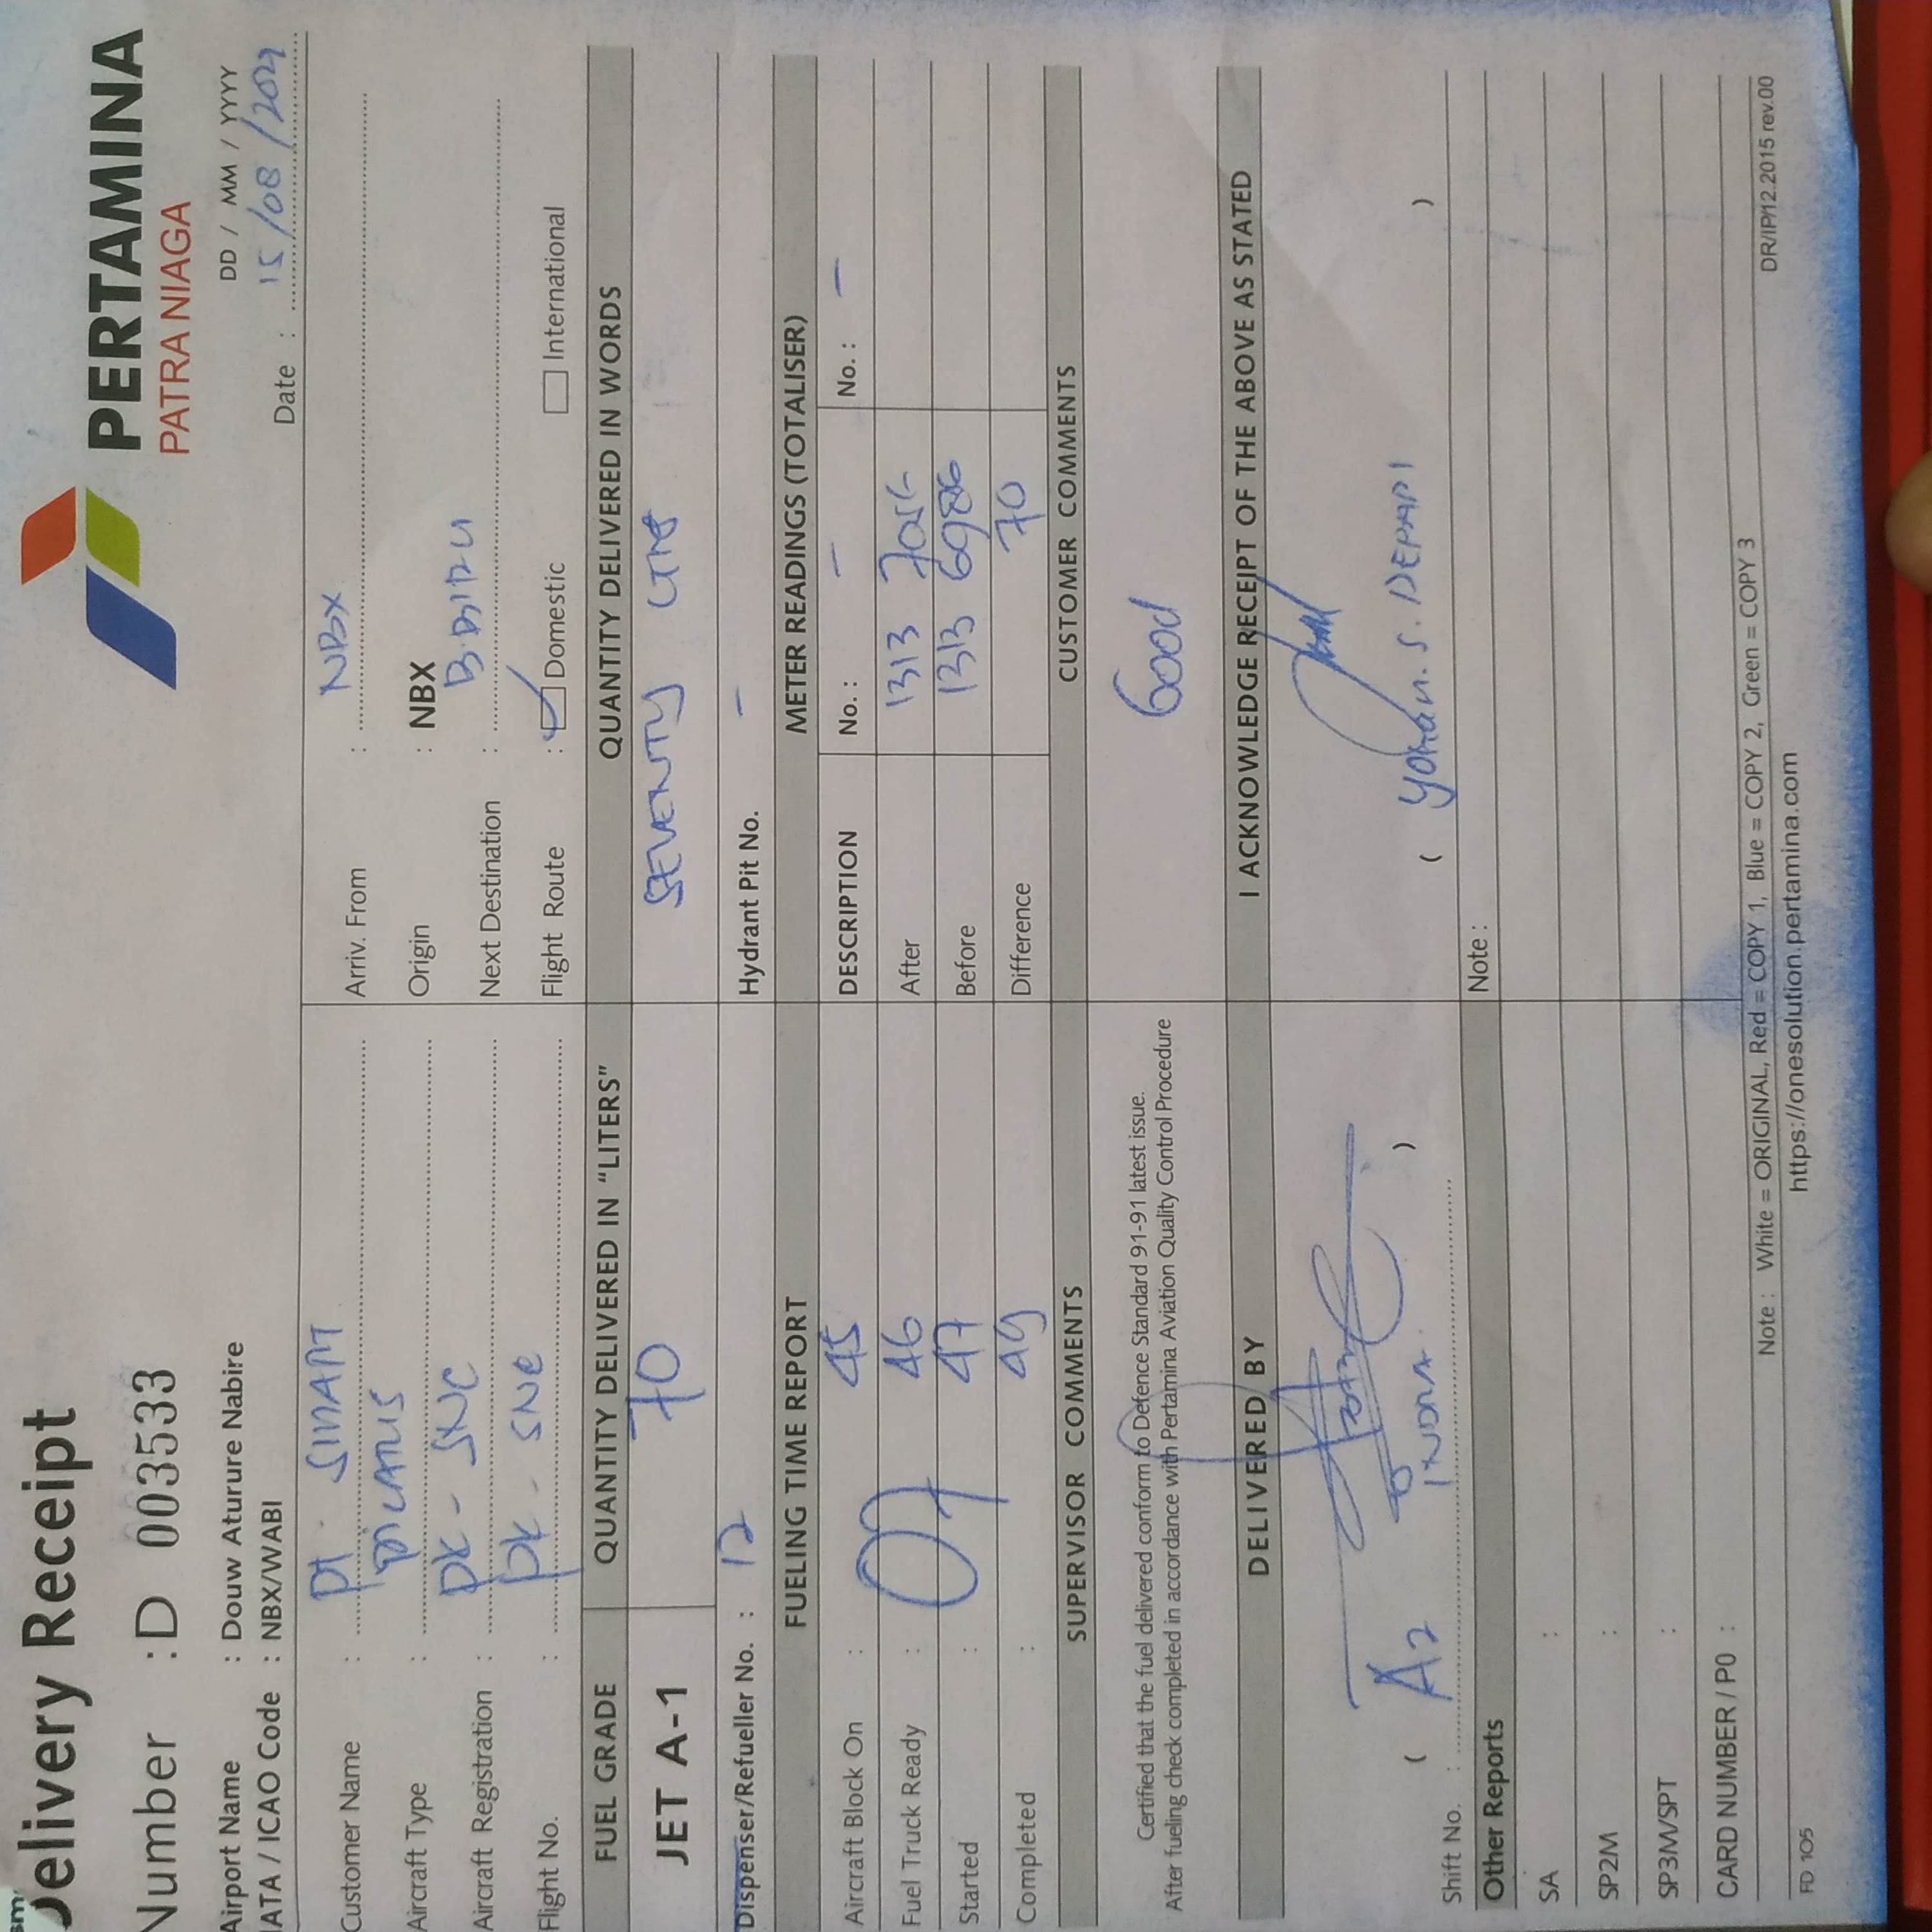 Delivery Receipt
PERTAMINA
PATRA NIAGA
Number : D 003533
DD / MM / YYYY
Airport Name : Douw Aturure Nabire
IATA / ICAO Code : NBX/WABI
Date : 15/08/2024
Customer Name : PT. SMART
Arriv. From : NBX
Aircraft Type : PILATUS
Origin : NBX
Aircraft Registration : PK - SNC
Next Destination : B. BIRU
Flight No. : PK - SNC
Flight Route : Domestic International
FUEL GRADE QUANTITY DELIVERED IN "LITERS" QUANTITY DELIVERED IN WORDS
JET A-1 70 SEVENTY LTRS
Dispenser/Refueller No. : 12 Hydrant Pit No. -
FUELING TIME REPORT METER READINGS (TOTALISER)
Aircraft Block On : 45 DESCRIPTION No. : - No. : -
Fuel Truck Ready : 07 46 After 1313
Started : 47 Before 1313 6986
Completed : 49 Difference 70
SUPERVISOR COMMENTS CUSTOMER COMMENTS
Certified that the fuel delivered conform to Defence Standard 91-91 latest issue.
After fueling check completed in accordance with Pertamina Aviation Quality Control Procedure
Good
DELIVERED BY I ACKNOWLEDGE RECEIPT OF THE ABOVE AS STATED
( )
( Yohan. S. )
Shift No. : A2
Other Reports Note :
SA :
SP2M :
SP3M/SPT :
CARD NUMBER / PO :
Note : White = ORIGINAL, Red = COPY 1, Blue = COPY 2, Green = COPY 3
DR/IP/12.2015 rev.00
FD 105
https://onesolution.pertamina.com